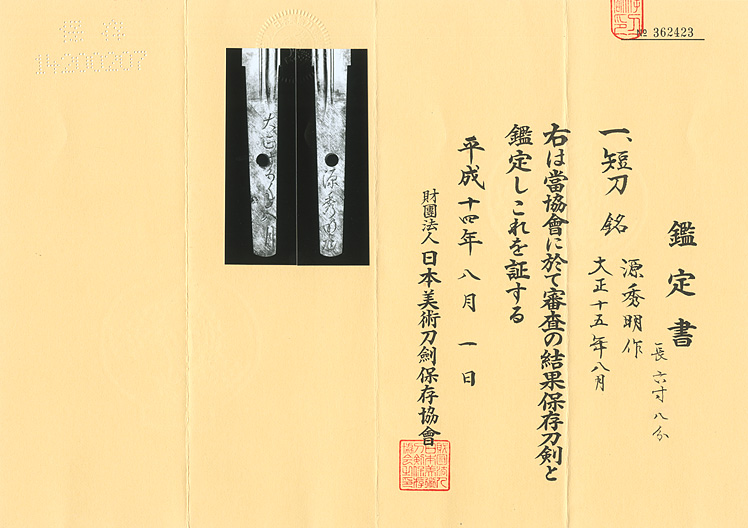 鑑定書
№ 362423
一、短刀 銘 源秀明作
大正十五年八月
長六寸八分
右は當協會に於て審査の結果保存刀剣と
鑑定しこれを証する
平成十四年八月一日
財團法人 日本美術刀劍保存協會
鑑存
14200207